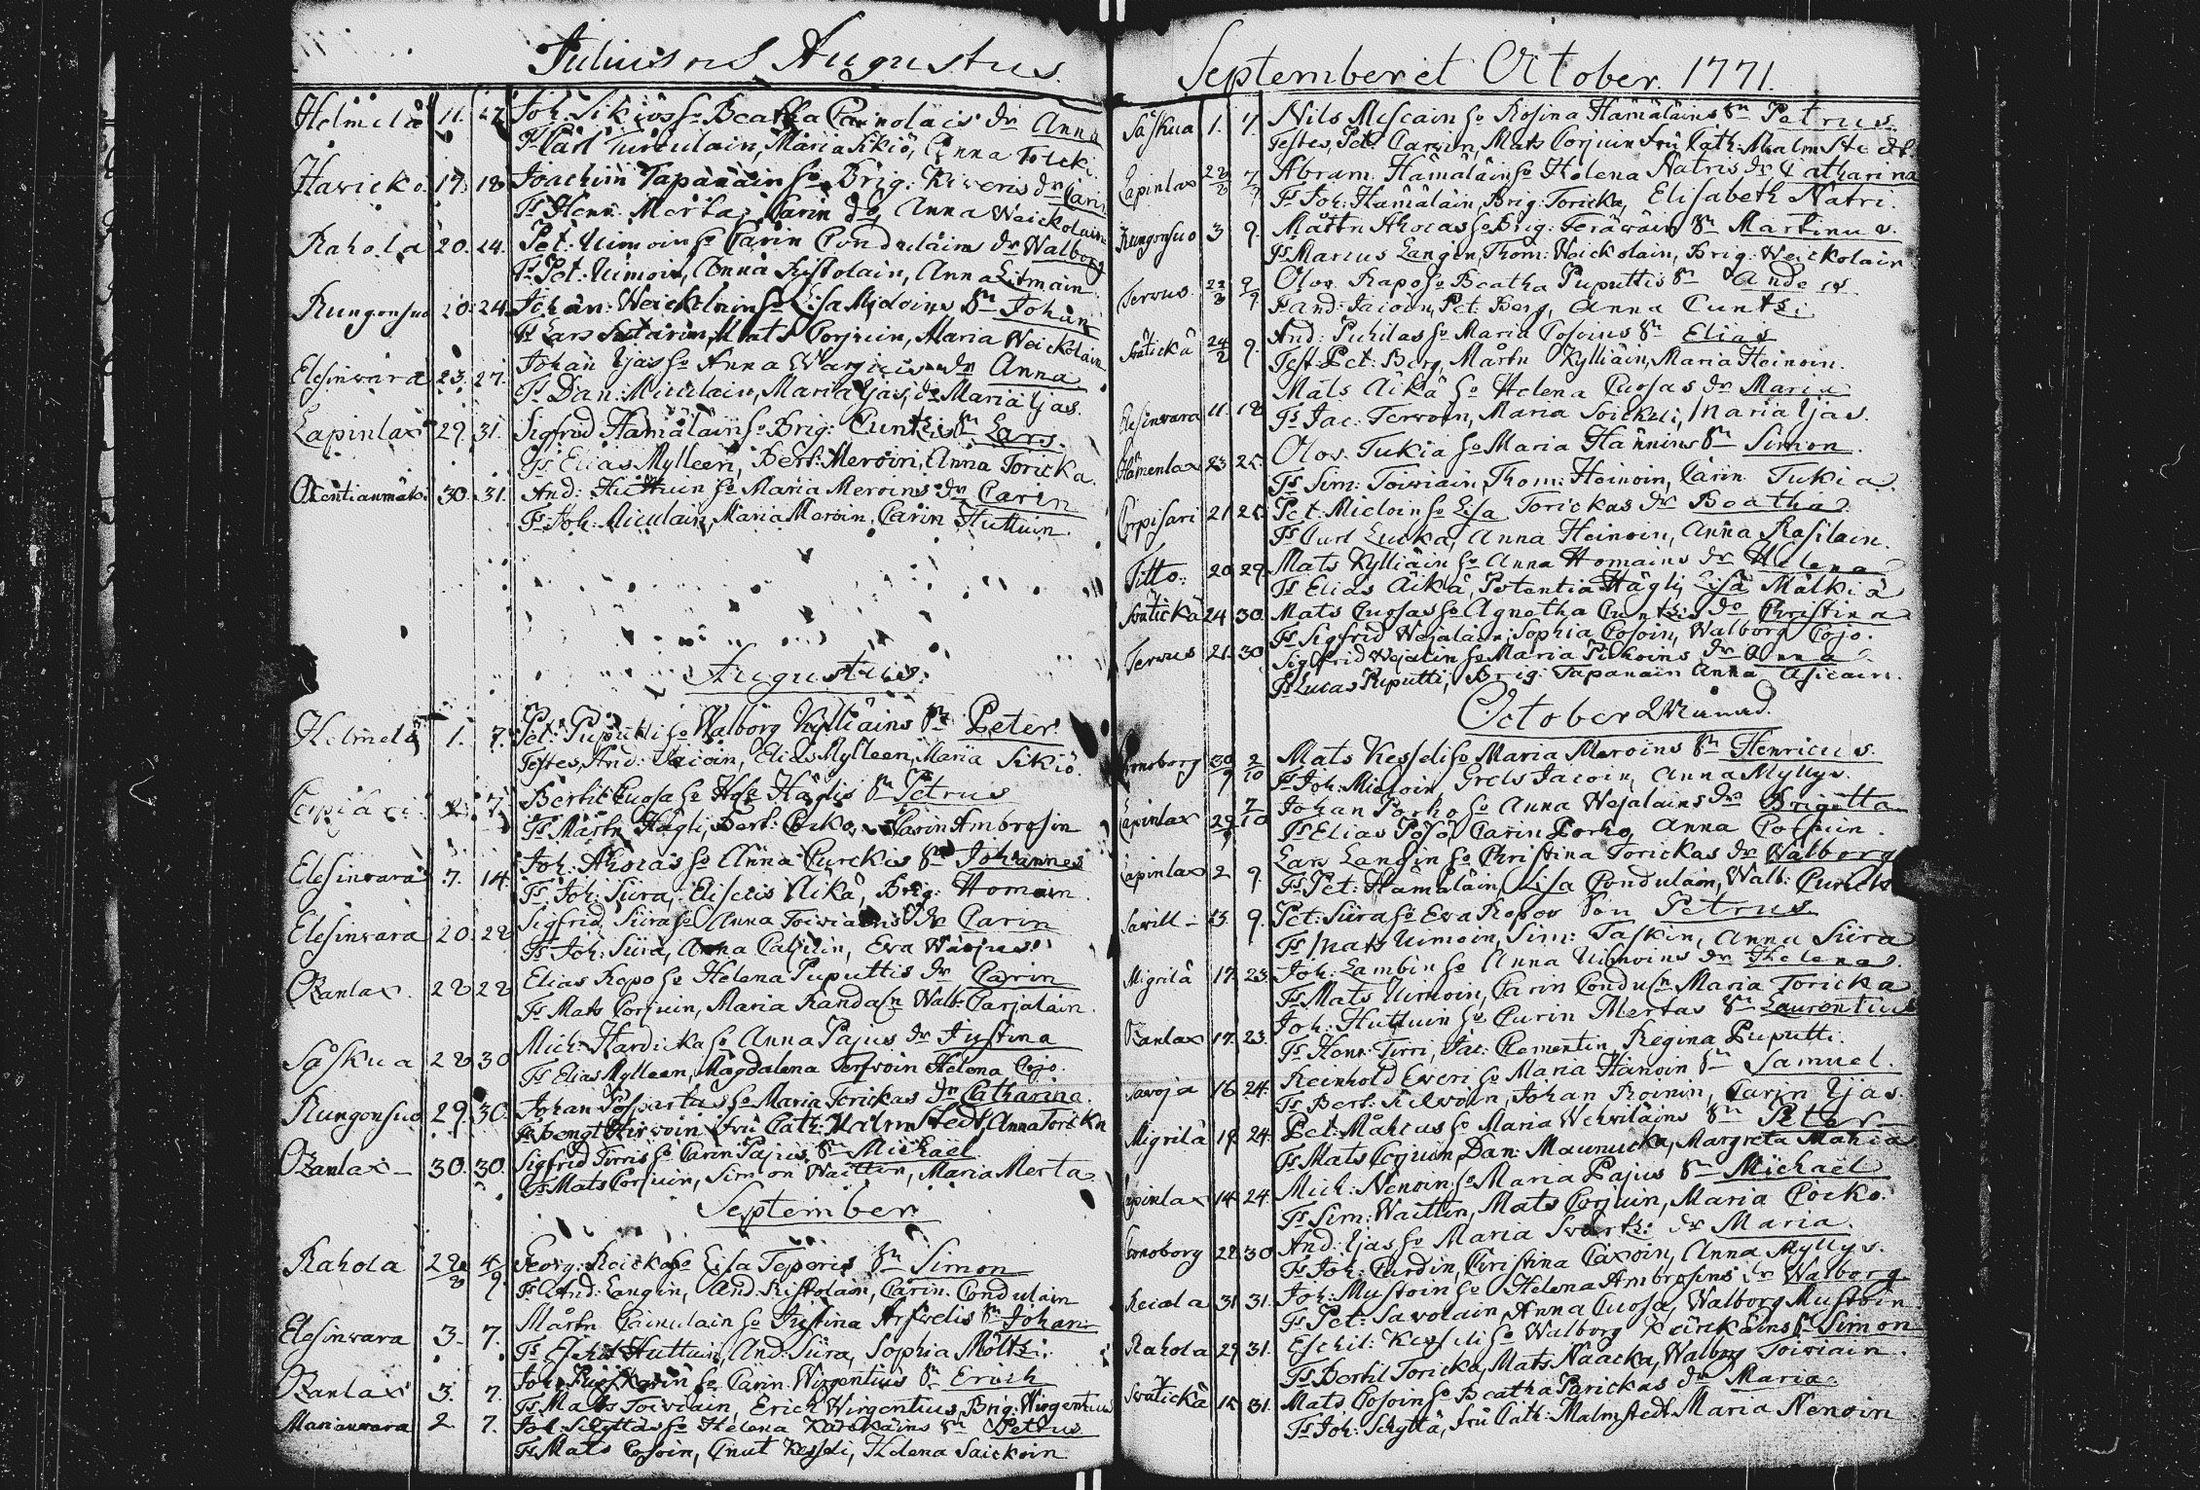 Julius och Augustus.
Helmilä 11. 27. Joh. Sikiös h. Beatha Cainolais dr Anna
Ts Carl Turculain, Maria Sikiö, Anna Toicki.
Havicko. 17. 18 Joachim Tapanain h. Brig: Riveris dr Carin
Ts Henr. Merta, Carin do, Anna Weickolain
Rahola 20. 24. Pet: Uimoin h. Carin Condulains dr Walborg
Ts Pet: Uimoin, Anna Ristolain, Anna Litmain
Rungonsuo 20. 24. Johan: Weickolain h. Lisa Midoins Sn Johan
Ts Lars Mats Corjuin, Maria Weickolain
Elesinvara 23. 27. Johan Ijas h. Anna dr Anna
Ts Dan: Miculain, Maria Ijas, do Maria Ijas.
Lapinlax 29. 31. Sigfrid Hämäläin h. Brig: Cuntzis Sn Lars.
Ts Elias Mylleen, Bert: Meroin, Anna Toricka.
30. 31. And: Huttuin h. Maria Meroins dr Carin
Ts Joh. Miculain, Maria Meroin, Carin Huttuin.
Augustus.
Helmelä 1. 7. Pet: Puputti h. Walborg Kylliäins Sn Peter
Testes, And: Jäcoin, Elias Mylleen, Maria Sikiö.
7. Bertil Cuosa h. Häglis Sn Petrus
Ts Mårtn Hägli, Bert: Cocko, Carin Ambrosin
Elesinvara 7. 14. Joh: Ahocas h. Anna Curckis Sn Johannes
Ts Joh: Siira, Äikä, Brig: Homain.
Elesinvara 20. 28 Sigfrid Siira h. Anna Toiviains dr Carin
Ts Joh: Siira, Anna Eva
Ozanlax. 28 28 Elias Ropo h. Helena Puputtis dr Carin
Ts Mats Corjuin, Maria Randaln Walb: Carjalain.
Såskua 28 30 Mich: Hardicka h. Anna Pajus dr Justina
Ts Elias Mylleen, Magdalena Terfvoin Helena Cojo.
Rungonsuo 29. 30. Johan h. Maria Torickas dr Catharina.
Ts Bengt Hirvoin fru Cath: Malmstedt, Anna Toricka
Ozanlax 30. 30. Sigfrid Tirris h. Carin Pajus Sn Michael
Ts Mats Corjuin, Simon Waittin, Maria Merta.
September
Rahola 28/8 4/9 Georg: Reicka h. Lisa Teperis Sn Simon
Ts And: Langin, And: Ristolain, Carin Condulain
Elesinvara 3. 7. Mårtn Cainulain h. Justina Arfvelis Sn Johan
Ts Eschil Huttuin, And: Siira, Sophia Möltti.
Ozanlax 3. 7. Joh: h. Carin Wirgentius Sn Erich
Ts Mats Toiviain, Erich Wirgentius, Brig: Wirgentius
Marianvara 2 7. Joh: Schyttäs h. Helena Kärckäins Sn Petrus
Ts Mats Cosoin, Cnut Kesseli, Helena Saickoin
September et October. 1771.
Såskua 1. 7. Nils Mescain h. Rosina Hämäläins Sn Petrus.
Testes, Pet: Carvin, Mats Corjuin fru Cath: Malmstedt.
Lapinlax 28/8 7/9 Abram. Hämäläin h. Helena Natris dr Catharina
Ts Joh: Hämäläin, Brig: Toricka, Elisabeth Natri.
Rungonsuo 3 9. Mårtn Ahocas h. Brig: Teräväin Sn Martinus.
Ts Marcus Langin, Thom: Weickolain, Brig: Weickolain
Tervus 9/9 Olov Rapo h. Beatha Puputtis Sn Anders.
Ts And: Jacoin, Pet: Berg, Anna Cuntzi
Svätickä 9. And: Puhilas h. Maria Cosoins Sn Elias
Test: Pet: Berg, Mårtn Kylliäin, Maria Hoinoin.
Elesinvara 11. 18 Mats Äikä h. Helena Cuosas dr Maria
Ts Jac: Tervoin, Maria Soickeli, Maria Ijas.
Hämenlax 23 25. Olov. Tukia h. Maria Hännins Sn Simon.
Ts Sim: Toiviain, Thom: Hoinoin, Carin Tukia.
Corpisari 21 25. Pet: Micloin h. Lisa Torickas dr Beatha.
Ts Curt Lucka, Anna Heinoin, Anna Rasilain.
Titto: 20 29. Mats Kylliäin h. Anna Homains dr Helena
Ts Elias Äikä, Potentia Hägli, Lisa Mälkiä
Svätickä 24 30. Mats Cuosas h. Agnetha Cuntzis dr Christina
Ts Sigfrid Wejaläin, Sophia Cosoin, Walborg Cojo.
Tervus 21. 30 Sigfrid Wejalin h. Maria Pickoins dr Anna.
Ts Lucas Puputti, Brig: Tapanain Anna Asicain.
October Månad.
Cronoborg 30/9 2/10 Mats Kesseli h. Maria Meroins Sn Henricus.
Ts Joh: Micloin, Grels Jacoin, Anna Myllys.
Lapinlax 29 7/10 Johan Porho h. Anna Wejalains dr Brigitta
Ts Elias Pösö, Carin Porho, Anna Corjuin.
Lapinlax 2 9. Lars Langin h. Christina Torickas dr Walborg
Ts Pet: Hämäläin, Lisa Condulain, Walb: Curcki
Savill 3. 9. Pet: Siira h. Eva Ropos Son Petrus
Ts Mats Uimoin, Sim: Taskin, Anna Siira
Migrilä 17. 23. Joh: Lambin h. Anna Uimoins dr Helena.
Ts Mats Uimoin, Carin Conduln Maria Toricka
Ozanlax 17. 23. Joh: Huttuin h. Carin Mertas Sn Laurentius
Ts Henr: Tirri, Jac: Clementin, Regina Puputti.
Savoja 16 24. Reinhold Everi h. Maria Hänoin Sn Samuel.
Ts Bert: Johan Roinin, Carin Ijas.
Migrilä 19. 24. Pet: Måhcus h. Maria Wehviläins Sn Peter
Ts Mats Corjuin, Dan: Maunucka, Margreta Mähiä
Lapinlax 14. 24. Mich: Nenoin h. Maria Pajus Sn Michael
Ts Sim: Waittin, Mats Corjuin, Maria Cocko.
Cronoborg 28. 30 And: Ijas h. Maria dr Maria.
Ts Joh: Curdin, Christina Caxoin, Anna Myllys.
Reicala 31 31. Joh: Mustoin h. Helena Ambrosins dr Walborg
Ts Pet: Savolain, Anna Cuosa, Walborg Mustoin
Rahola 29 31. Eschil: Kesseli h. Walborg Kärckäins Sn Simon
Ts Bertil Toricka, Mats Naacka, Walborg Toiviain.
Svätickä 15 31. Mats Cosoin h. Beatha Parickas dr Maria.
Ts Joh: Schyttä, fru Cath: Malmstedt Maria Nenoin